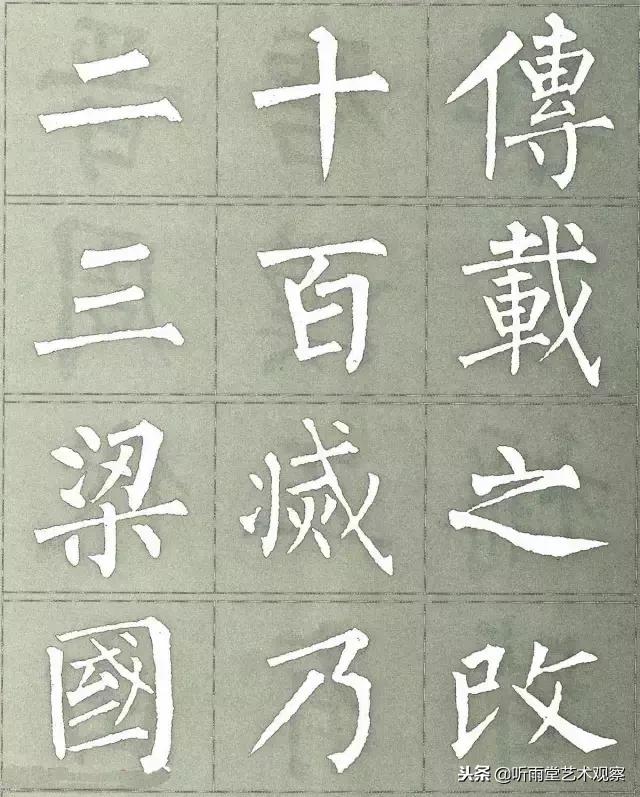 傳載之改
十百滅乃
二三梁國
头条 @听雨堂艺术观察